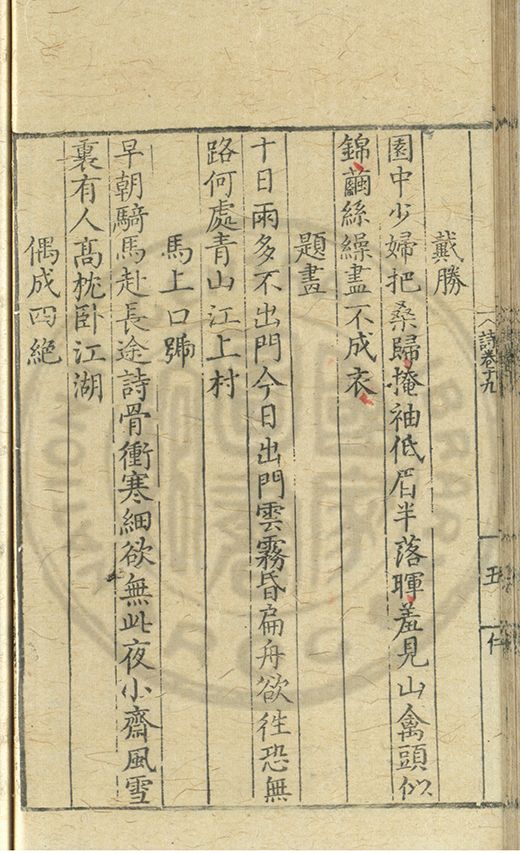 詩卷十九
五
仁
戴勝
園中少婦把桑歸掩袖低眉半落暉羞見山禽頭似
錦繭絲繰盡不成衣
題畫
十日雨多不出門今日出門雲霧昏扁舟欲徃恐無
路何處青山江上村
馬上口號
早朝騎馬赴長途詩骨衝寒細欲無此夜小齋風雪
裏有人髙枕卧江湖
偶成四絶